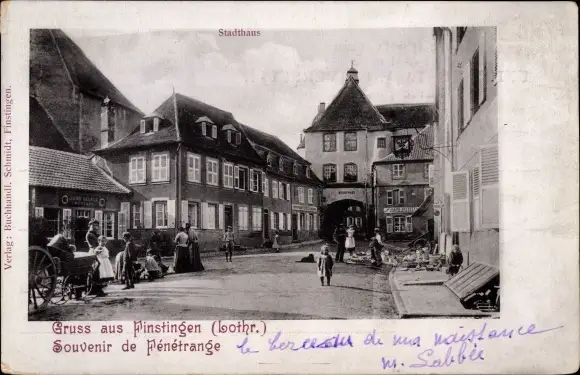 Stadthaus
Verlag: Buchhandl. Schmidt, Finstingen.
Gruss aus Finstingen (Lothr.)
Souvenir de Fénétrange
le berceau de ma naissance
m. Sabbée